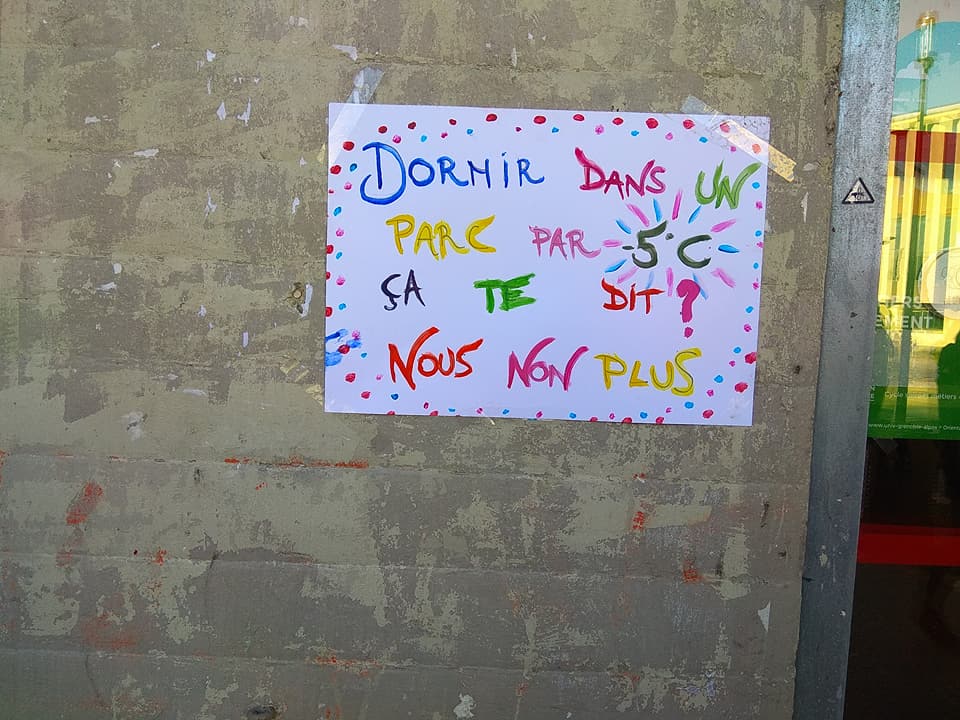 DORMIR DANS UN
PARC PAR -5°C
ÇA TE DIT ?
NOUS NON PLUS
www.univ-grenoble-alpes